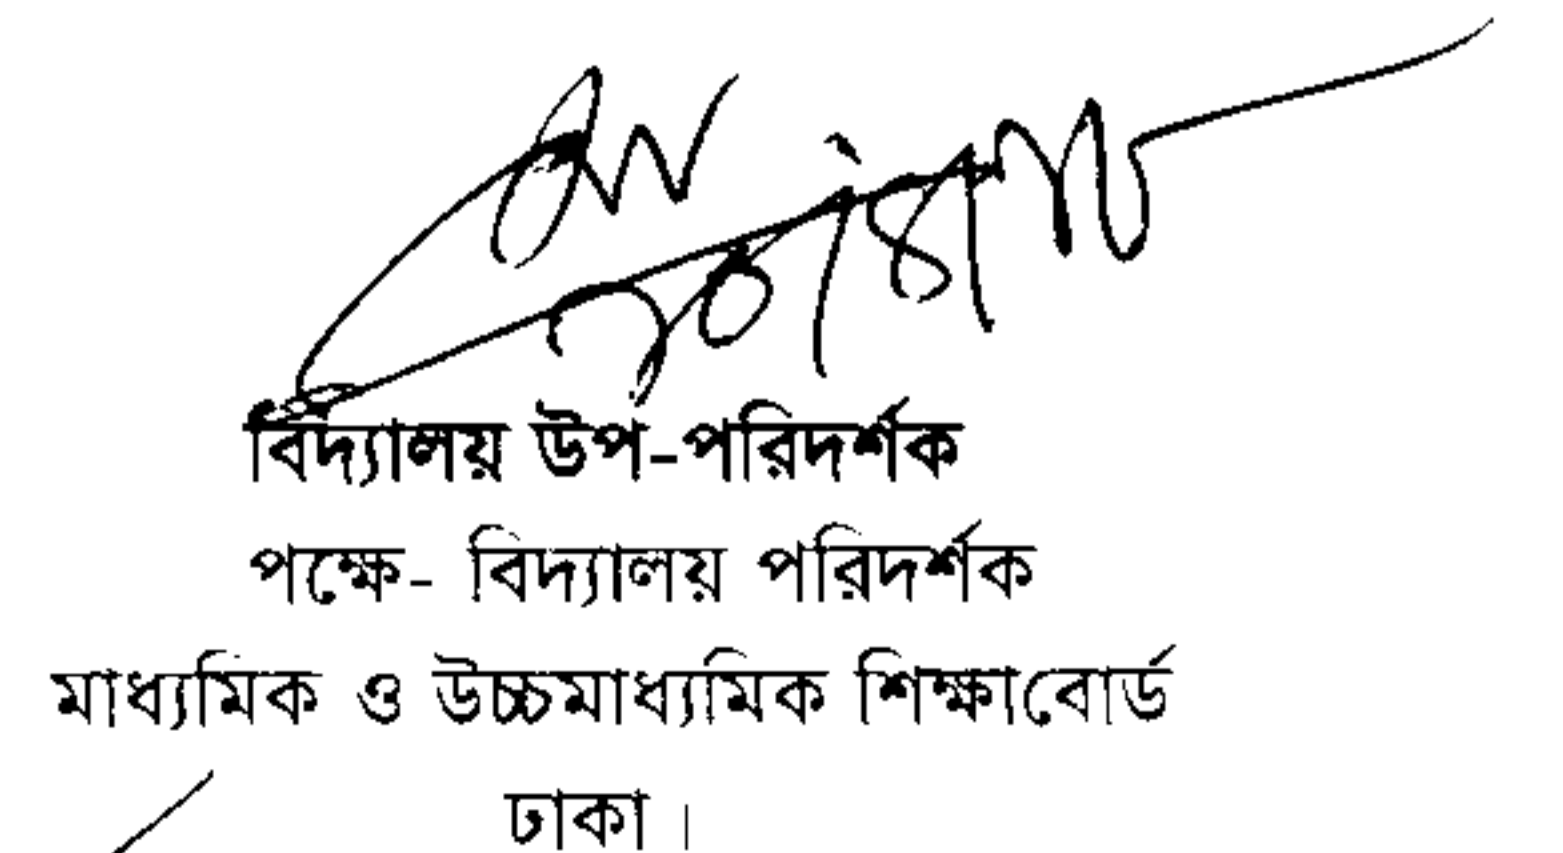 বিদ্যালয় উপ-পরিদর্শক
পক্ষে- বিদ্যালয় পরিদর্শক
মাধ্যমিক ও উচ্চমাধ্যমিক শিক্ষাবোর্ড
ঢাকা।